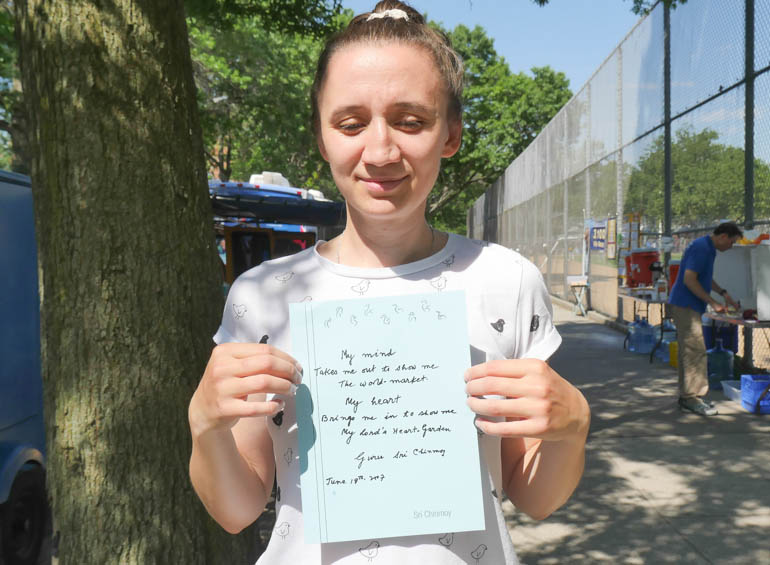 My mind
Takes me out to show me
The world-market.
My heart
Brings me in to show me
My Lord's Heart-Garden
Guru Sri Chinmoy
Sri Chinmoy